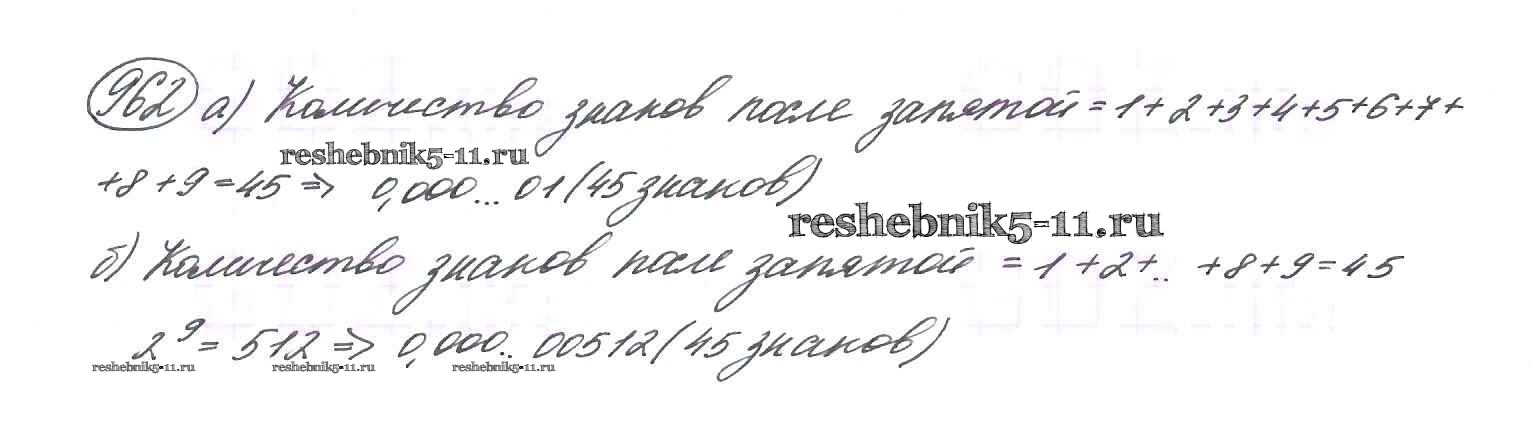 962 а) Количество знаков после запятой = 1 + 2 + 3 + 4 + 5 + 6 + 7 +
reshebnik5-11.ru
+ 8 + 9 = 45 => 0,000... 01 (45 знаков)
reshebnik5-11.ru
б) Количество знаков после запятой = 1 + 2 + .. + 8 + 9 = 45
2⁹ = 512 => 0,000.. 00512 (45 знаков)
reshebnik5-11.ru reshebnik5-11.ru reshebnik5-11.ru